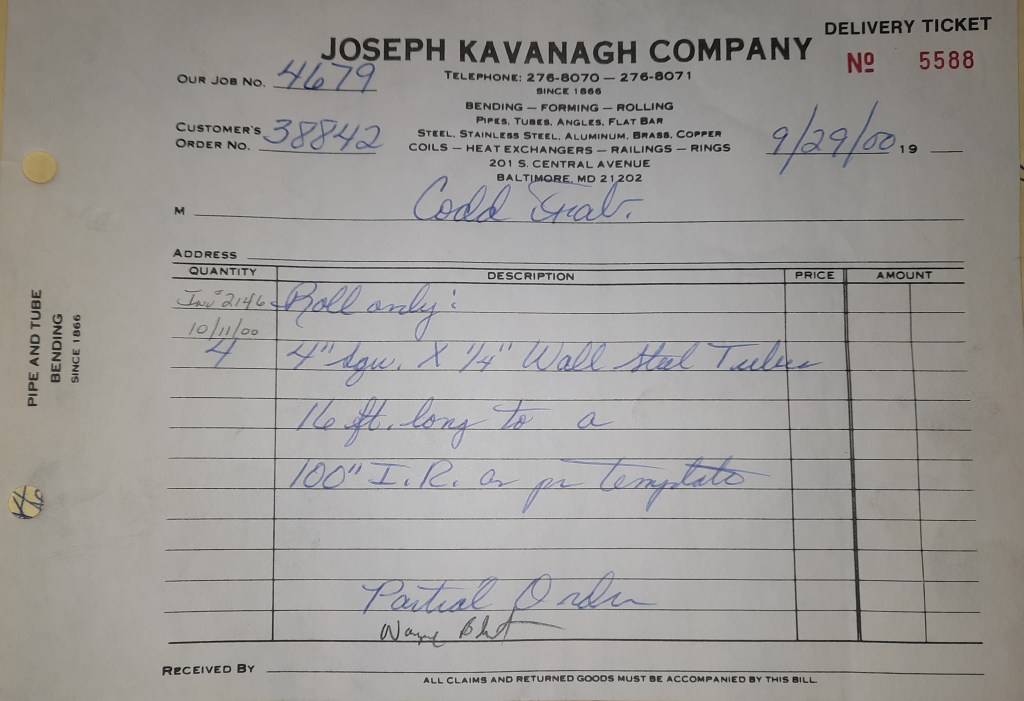 DELIVERY TICKET
JOSEPH KAVANAGH COMPANY
No 5588
OUR JOB NO. 4679
TELEPHONE: 276-8070 — 276-8071
SINCE 1866
BENDING — FORMING — ROLLING
PIPES, TUBES, ANGLES, FLAT BAR
CUSTOMER'S ORDER NO. 38842
STEEL, STAINLESS STEEL, ALUMINUM, BRASS, COPPER
COILS — HEAT EXCHANGERS — RAILINGS — RINGS
9/29/00 19
201 S. CENTRAL AVENUE
BALTIMORE, MD 21202
M Codd Fab.
ADDRESS
QUANTITY DESCRIPTION PRICE AMOUNT
Inv # 2146 Roll only:
10/11/00
4 4" Squ. X 1/4" Wall Steel Tubes
16 ft. long to a
100" I.R. as per template
Partial Order
Wayne
RECEIVED BY
ALL CLAIMS AND RETURNED GOODS MUST BE ACCOMPANIED BY THIS BILL.
PIPE AND TUBE
BENDING
SINCE 1866